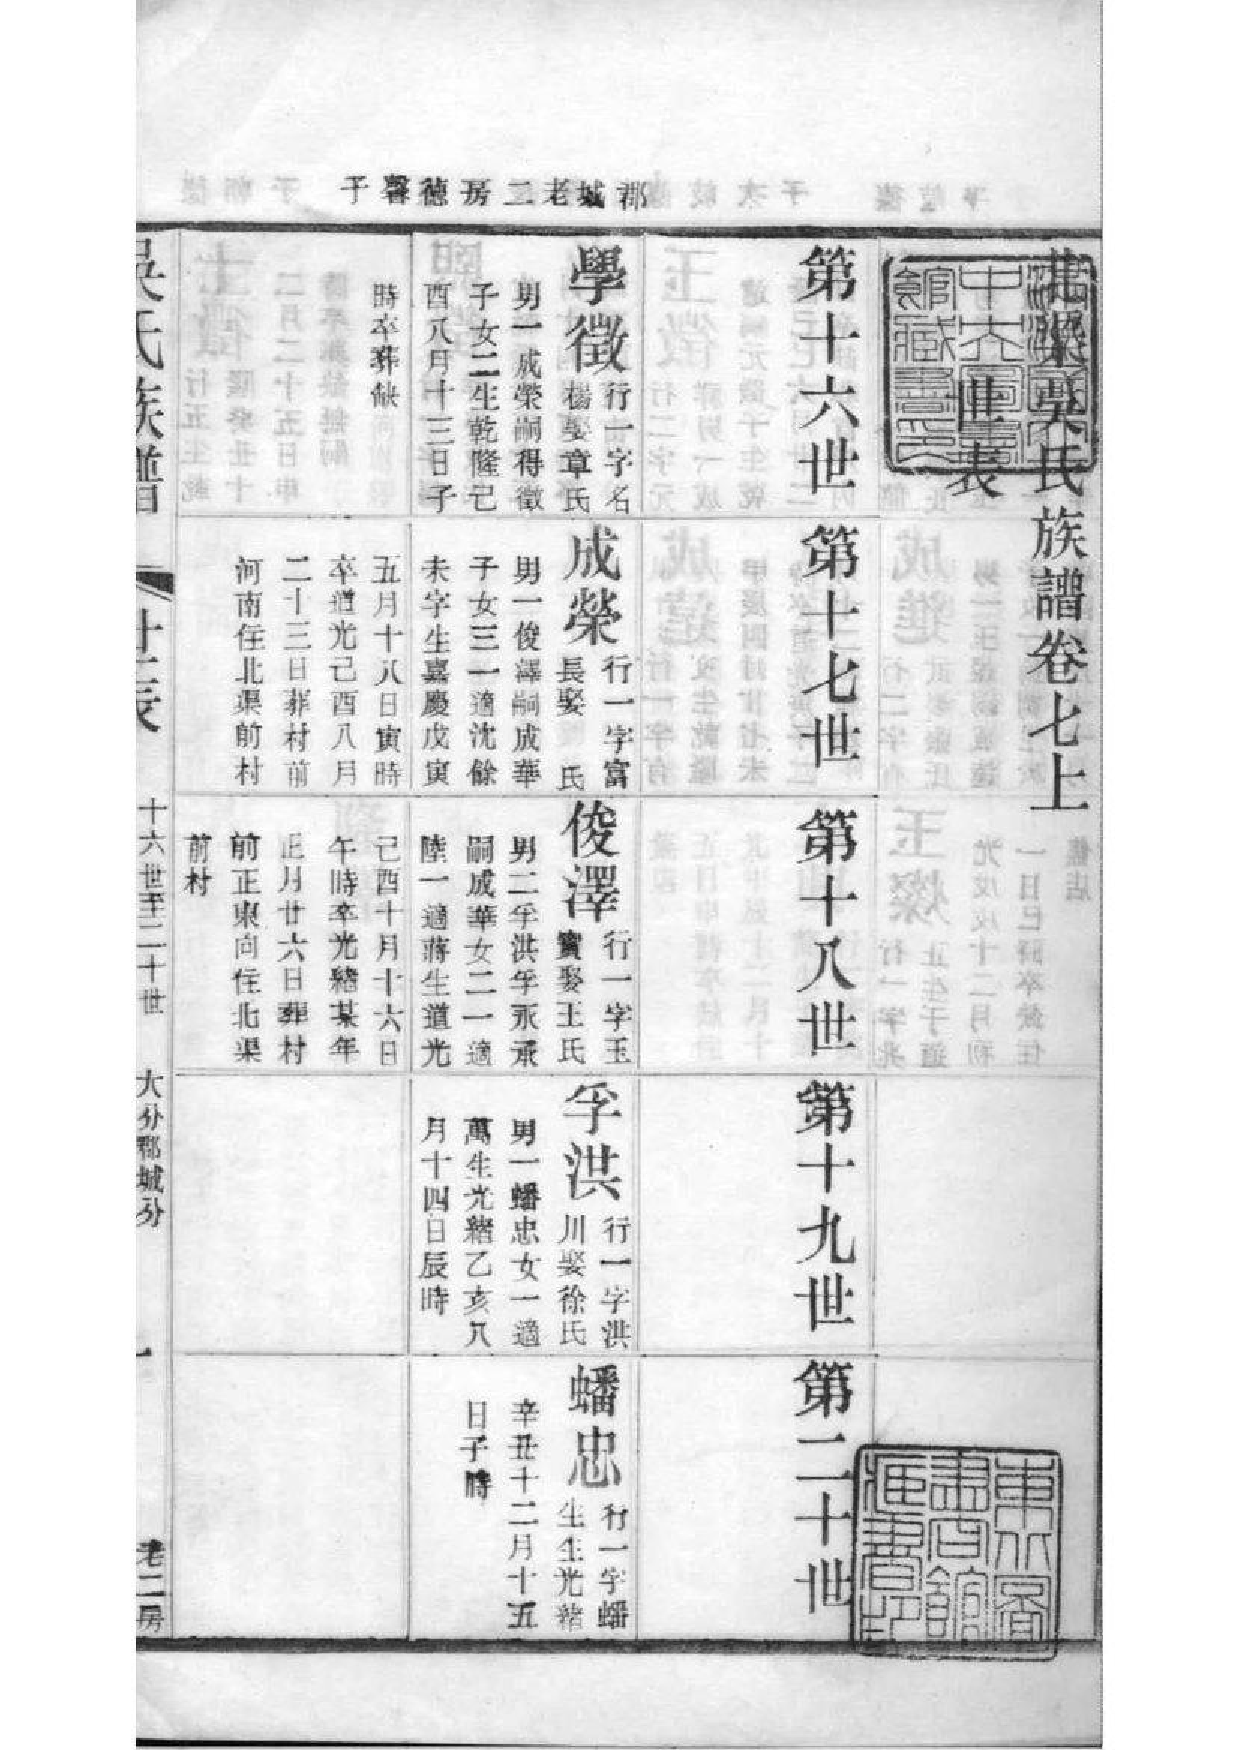 郡城老二房德馨子
北渠吳氏族譜卷七上
世表
第十六世
第十七世
第十八世
第十九世
第二十世
學徵
行一字名
楊娶章氏
男一成榮嗣得徵
子女二生乾隆己
酉八月十三日子
時卒葬缺
成榮
行一字富
長娶 氏
男一俊澤嗣成華
子女三一適沈餘
未字生嘉慶戊寅
五月十八日寅時
卒道光己酉八月
二十三日葬村前
河南住北渠前村
俊澤
行一字玉
寶娶王氏
男二孚洪孚永承
嗣成華女二一適
陸一適蔣生道光
己酉十月十六日
午時卒光緒某年
正月廿六日葬村
前正東向住北渠
前村
孚洪
行一字洪
川娶徐氏
男一蟠忠女一適
萬生光緒乙亥八
月十四日辰時
蟠忠
行一字蟠
生生光緒
辛丑十二月十五
日子時
吳氏族譜
世表
十六世至二十世
大分郡城分
一
老二房